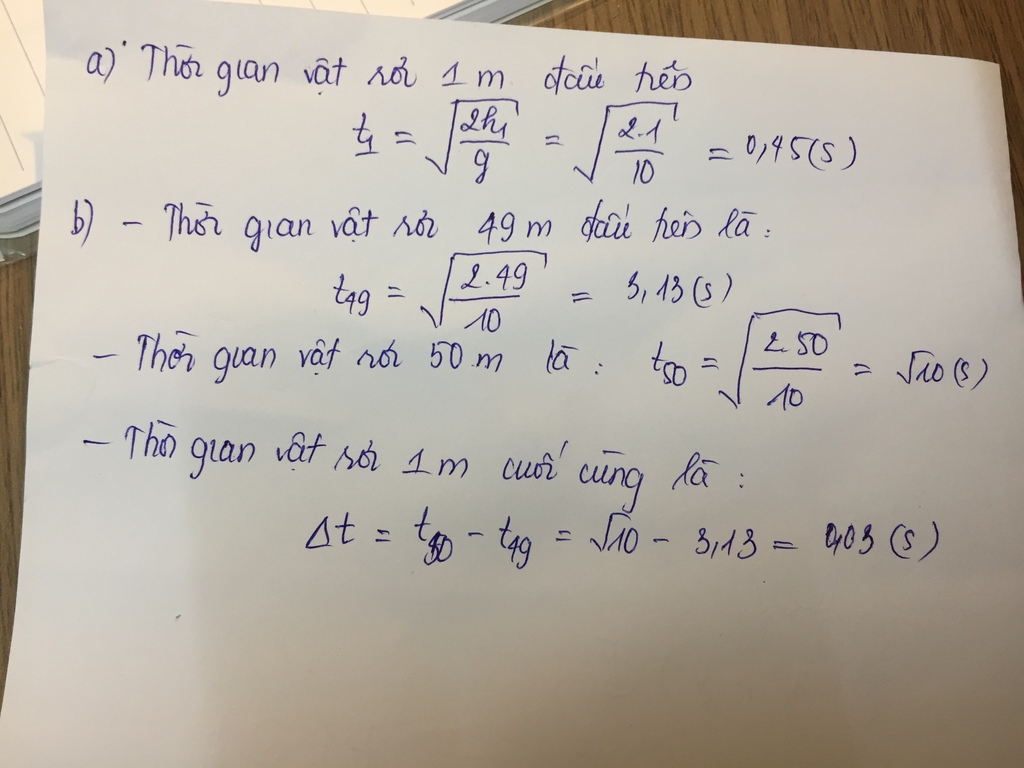 a) Thời gian vật rơi 1 m đầu tiên
t₁ = √(2h₁/g) = √(2.1/10) = 0,45(s)
b) - Thời gian vật rơi 49 m đầu tiên là :
t₄₉ = √(2.49/10) = 3,13(s)
- Thời gian vật rơi 50 m là : t₅₀ = √(2.50/10) = √10(s)
- Thời gian vật rơi 1m cuối cùng là :
Δt = t₅₀ - t₄₉ = √10 - 3,13 = 0,03 (s)